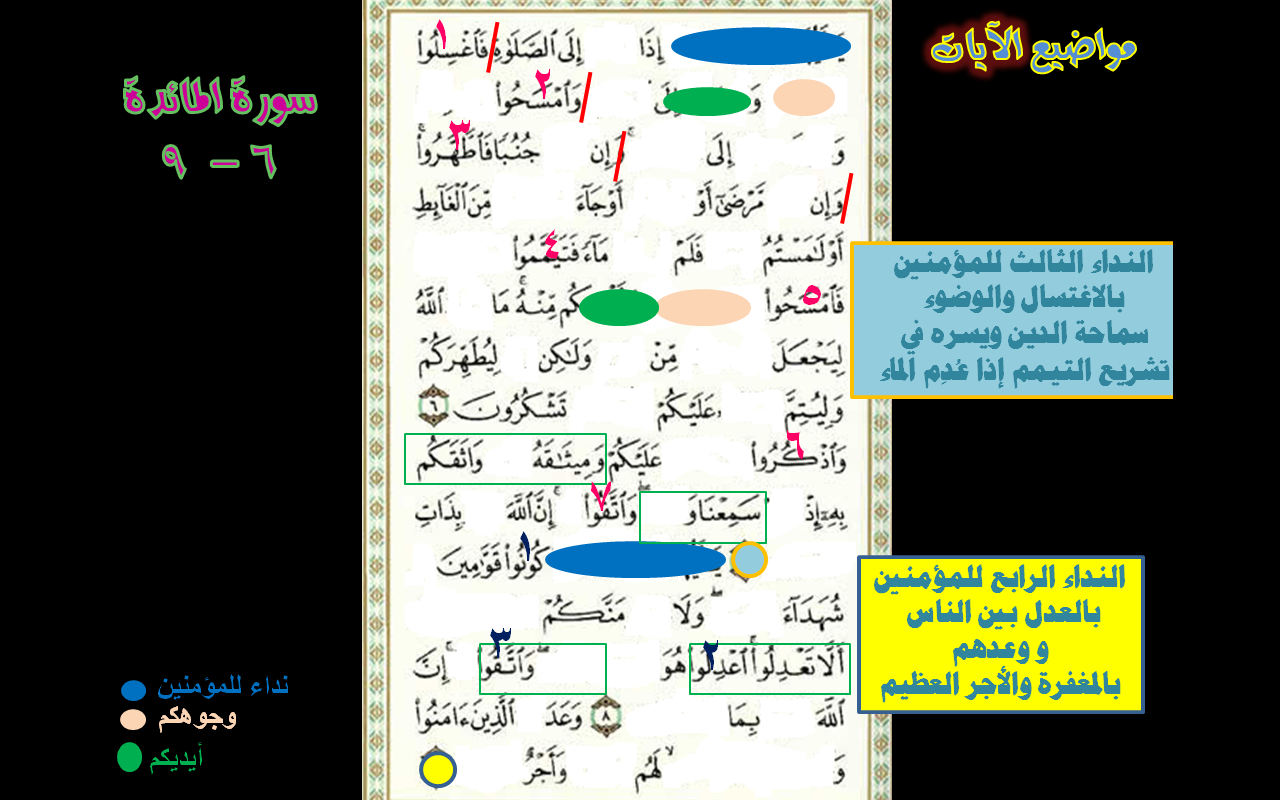 مواضيع الآيات
سورة المائدة
٦ – ٩
إِذَا إِلَى ٱلصَّلَوٰةِ فَٱغْسِلُوا۟ ١
وَ إِلَى وَٱمْسَحُوا۟ ٢
وَ إِلَى وَإِن جُنُبًا فَٱطَّهَّرُوا۟ ٣
وَإِن مَّرْضَىٰٓ أَوْ أَوْ جَآءَ مِّنَ ٱلْغَآئِطِ
أَوْ لَٰمَسْتُمُ فَلَمْ مَآءً فَتَيَمَّمُوا۟ ٤
فَٱمْسَحُوا۟ ٥ كُم مِّنْهُ مَا ٱللَّهُ
لِيَجْعَلَ مِّنْ وَلَٰكِن لِيُطَهِّرَكُمْ
وَلِيُتِمَّ عَلَيْكُمْ تَشْكُرُونَ ٦
وَٱذْكُرُوا۟ ٦ عَلَيْكُمْ وَمِيثَٰقَهُ وَاثَقَكُم
بِهِۦٓ إِذْ سَمِعْنَا وَ وَٱتَّقُوا۟ ٧ إِنَّ ٱللَّهَ بِذَاتِ
كُونُوا۟ ١ قَوَّٰمِينَ
شُهَدَآءَ وَلَا مَنَّكُمْ
أَلَّا تَعْدِلُوا۟ ٱعْدِلُوا۟ ٢ هُوَ وَٱتَّقُوا۟ ٣ إِنَّ
ٱللَّهَ بِمَا ٨ وَعَدَ ٱلَّذِينَ ءَامَنُوا۟
وَ لَهُم وَأَجْرٌ
النداء الثالث للمؤمنين
بالاغتسال والوضوء
سماحة الدين ويسره في
تشريع التيمم إذا عُدِم الماء
النداء الرابع للمؤمنين
بالعدل بين الناس
و وعدهم
بالمغفرة والأجر العظيم
نداء للمؤمنين
وجوهكم
أيديكم